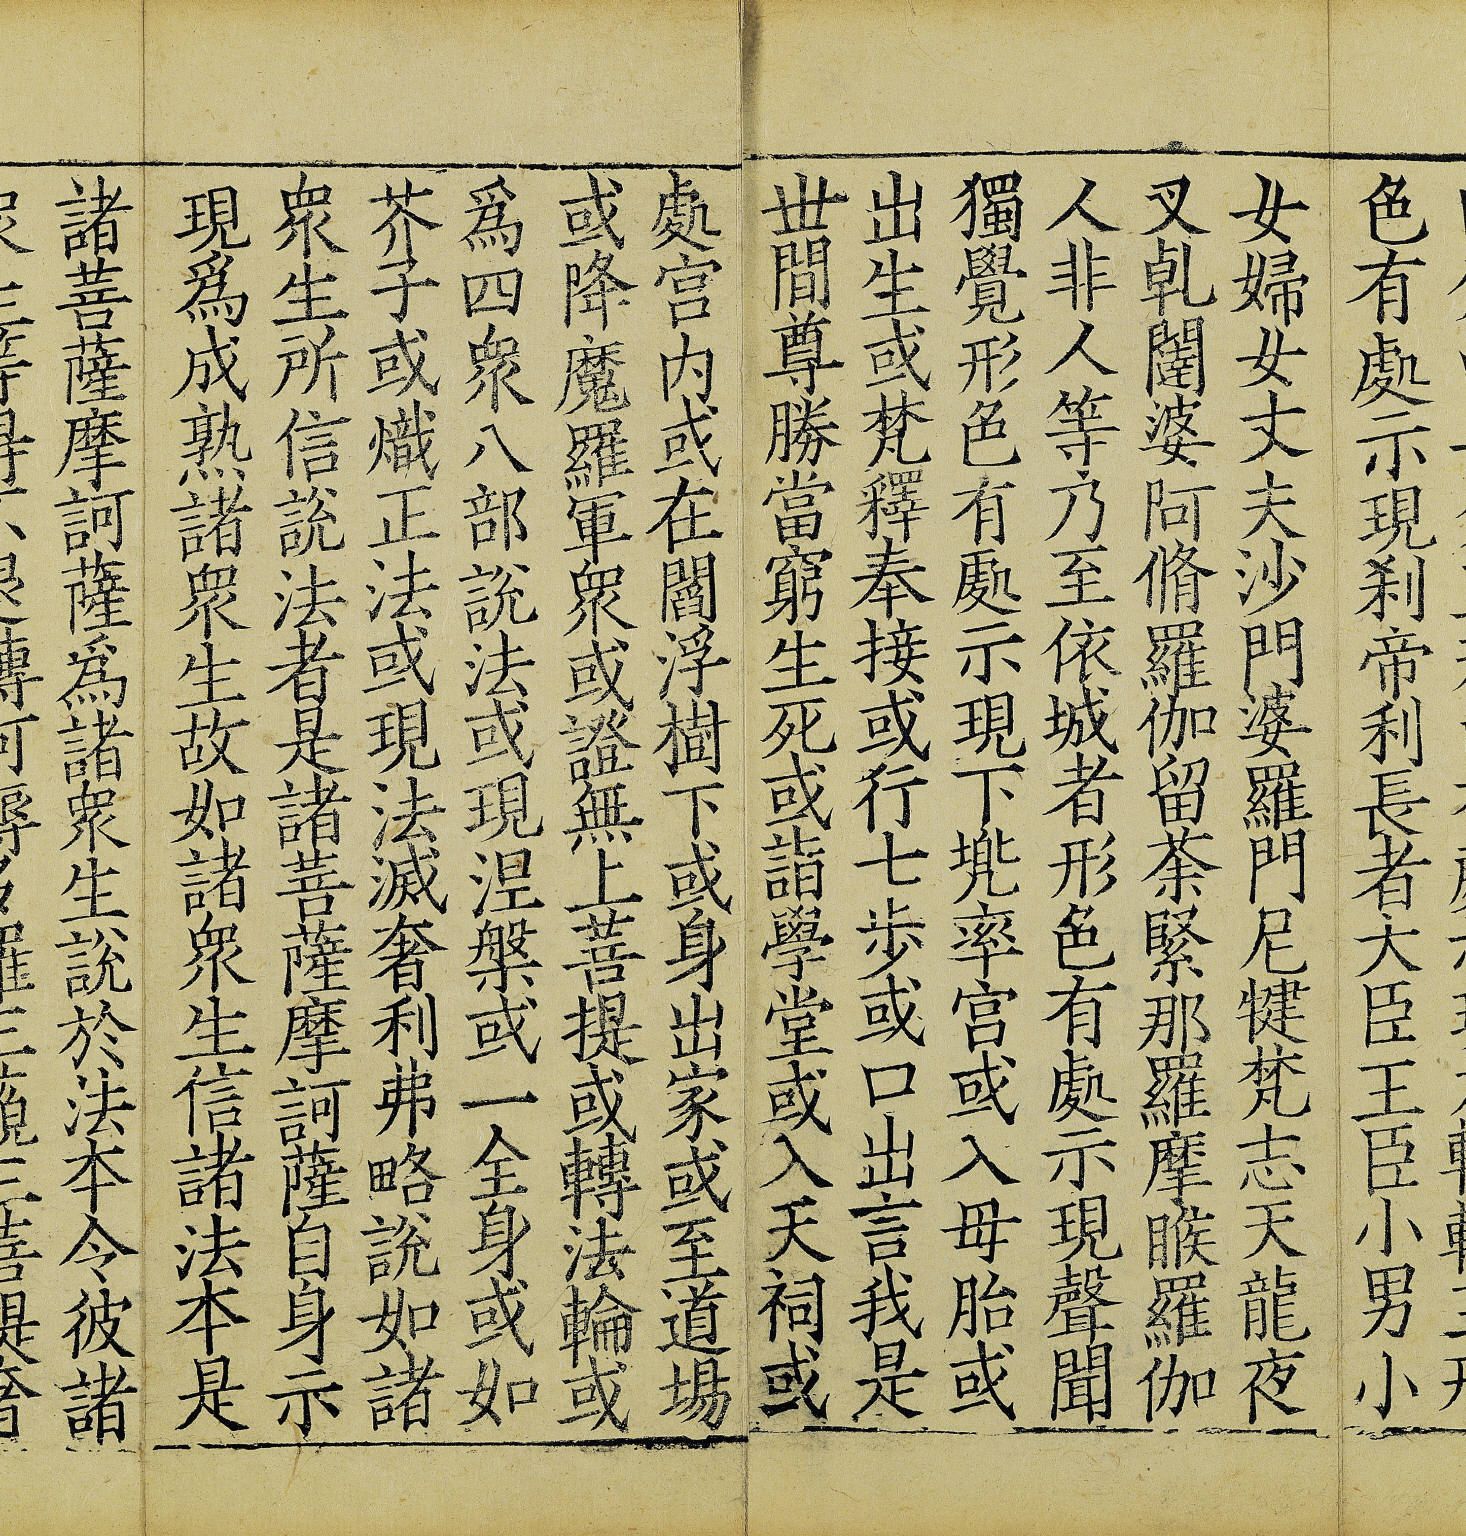 色有處示現刹帝利長者大臣王臣小男小
女婦女丈夫沙門婆羅門尼犍梵志天龍夜
叉乹闥婆阿脩羅伽留茶緊那羅摩睺羅伽
人非人等乃至依城者形色有處示現聲聞
獨覺形色有處示現下兠率宫或入母胎或
出生或梵釋奉接或行七步或口出言我是
世間尊勝當窮生死或詣學堂或入天祠或
處宫内或在閻浮樹下或身出家或至道場
或降魔羅軍衆或證無上菩提或轉法輪或
爲四衆八部說法或現涅槃或一全身或如
芥子或熾正法或現法滅奢利弗略說如諸
衆生所信說法者是諸菩薩摩訶薩自身示
現爲成熟諸衆生故如諸衆生信諸法本是
諸菩薩摩訶薩爲諸衆生說於法本令彼諸